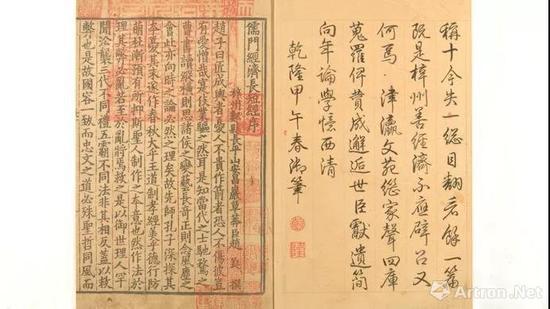 稱十今失一總目翻看餘一篇
既是梓州善經濟不應辟召又
何焉津瀛文苑繼家聲四庫
蒐羅俾贊成邂逅世臣獻遺簡
向年論學憶西清
乾隆甲午春御筆
儒門經濟長短經序
梓州郪縣長平山安昌巖草莽臣趙蕤撰
趙子曰匠成輿者憂人不貴作箭者恐人不傷彼豈
有愛憎哉寔伎業驅之然耳是知當代之士馳騖之
曹書讀縱橫則思諸侯之變藝長奇正則念風塵之
會此亦向時之論必然之理矣故先師孔子深探其
本憂其末遂作春秋大乎王道制孝經美乎德行防
萌杜漸預有所抑斯聖人制作之本意也然作法於
理其弊必亂若至於亂將焉救之是以御世理人罕
聞沿襲三代不同禮五霸不同法非其相反蓋以救
弊也是故國容一致而忠文之道必殊聖哲同風而
Artron.Net